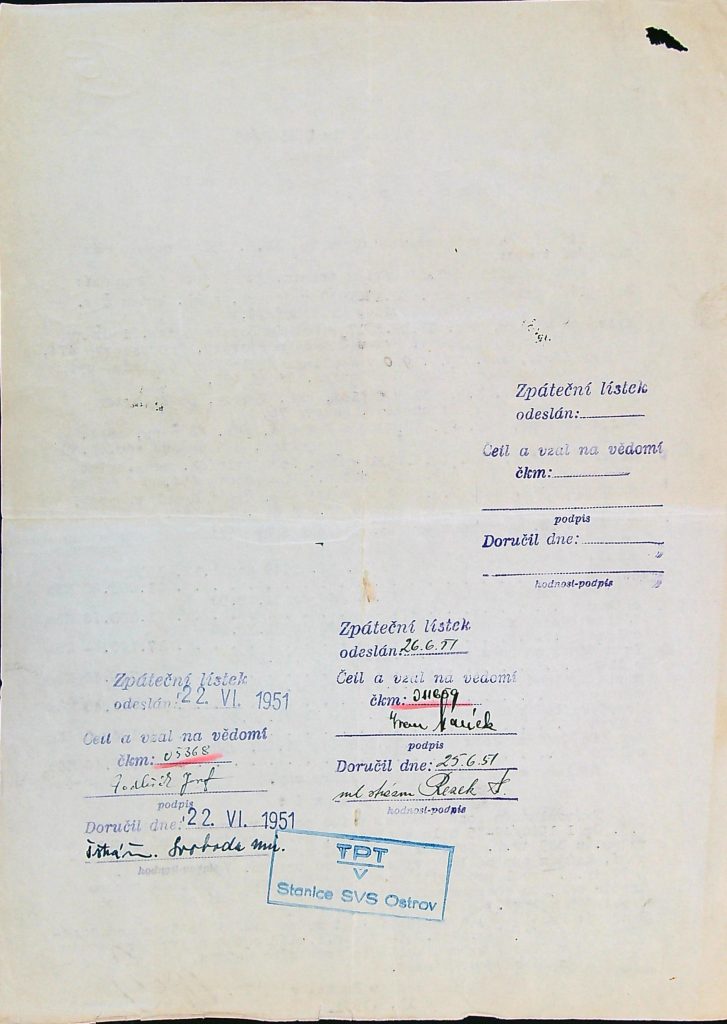 Zpáteční lístek
odeslán:
Četl a vzal na vědomí
čkm:
podpis
Doručil dne:
hodnost-podpis
Zpáteční lístek
odeslán: 26.6.51
Četl a vzal na vědomí
čkm:
podpis
Doručil dne: 25.6.51
Rezek
hodnost-podpis
Zpáteční lístek
odeslán: 22. VI. 1951
Četl a vzal na vědomí
čkm: 05368
podpis
Doručil dne: 22. VI. 1951
Svoboda
hodnost-podpis
TPT
V
Stanice SVS Ostrov